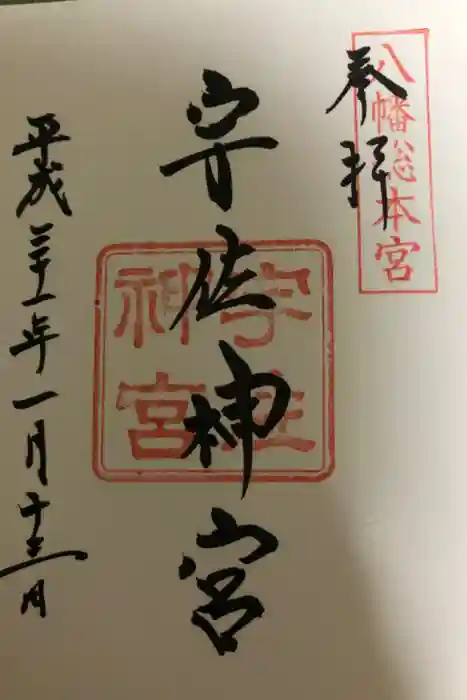 八幡総本宮
奉拝
宇佐神宮
宇佐
神宮
平成三十一年一月十三日